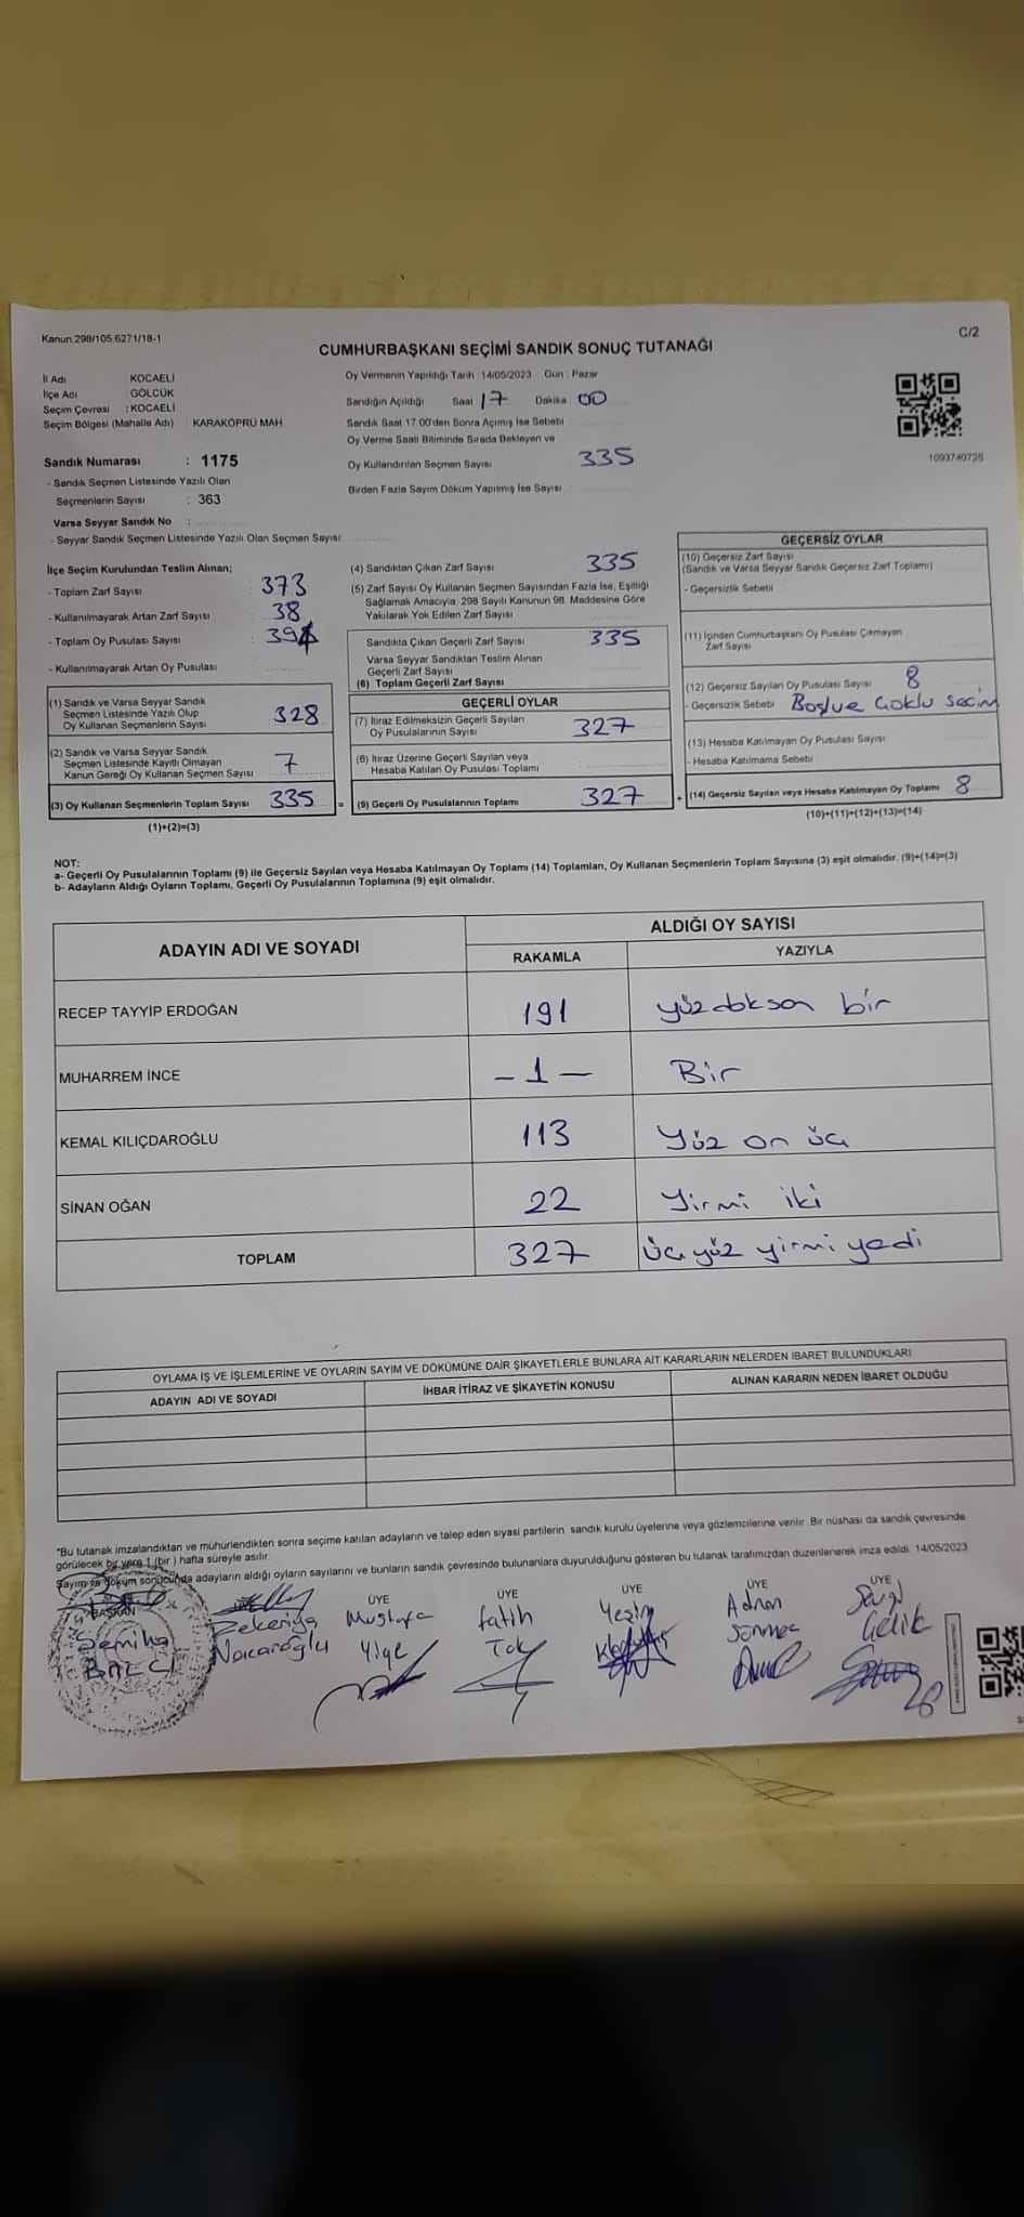 Kanun 298/105 6271/18-1
C/2
CUMHURBAŞKANI SEÇİMİ SANDIK SONUÇ TUTANAĞI
İl Adı KOCAELİ
İlçe Adı GÖLCÜK
Seçim Çevresi : KOCAELİ
Seçim Bölgesi (Mahalle Adı) KARAKÖPRÜ MAH
Sandık Numarası : 1175
- Sandık Seçmen Listesinde Yazılı Olan
Seçmenlerin Sayısı : 363
Varsa Seyyar Sandık No :
- Seyyar Sandık Seçmen Listesinde Yazılı Olan Seçmen Sayısı
Oy Vermenin Yapıldığı Tarih : 14/05/2023 Gün : Pazar
Sandığın Açıldığı Saat 17 Dakika 00
Sandık Saat 17:00'den Sonra Açılmış İse Sebebi
Oy Verme Saati Bitiminde Sırada Bekleyen ve
Oy Kullandırılan Seçmen Sayısı 335
Birden Fazla Sayım Döküm Yapılmış İse Sayısı
1093740725
İlçe Seçim Kurulundan Teslim Alınan;
- Toplam Zarf Sayısı 373
- Kullanılmayarak Artan Zarf Sayısı 38
- Toplam Oy Pusulası Sayısı
- Kullanılmayarak Artan Oy Pusulası
(1) Sandık ve Varsa Seyyar Sandık
Seçmen Listesinde Yazılı Olup
Oy Kullanan Seçmenlerin Sayısı 328
(2) Sandık ve Varsa Seyyar Sandık
Seçmen Listesinde Kayıtlı Olmayan
Kanun Gereği Oy Kullanan Seçmen Sayısı 7
(3) Oy Kullanan Seçmenlerin Toplam Sayısı 335 =
(1)+(2)=(3)
(4) Sandıktan Çıkan Zarf Sayısı 335
(5) Zarf Sayısı Oy Kullanan Seçmen Sayısından Fazla İse, Eşitliği
Sağlamak Amacıyla, 298 Sayılı Kanunun 98. Maddesine Göre
Yakılarak Yok Edilen Zarf Sayısı
Sandıkta Çıkan Geçerli Zarf Sayısı 335
Varsa Seyyar Sandıktan Teslim Alınan
Geçerli Zarf Sayısı
(6) Toplam Geçerli Zarf Sayısı
GEÇERLİ OYLAR
(7) İtiraz Edilmeksizin Geçerli Sayılan
Oy Pusulalarının Sayısı 327
(8) İtiraz Üzerine Geçerli Sayılan veya
Hesaba Katılan Oy Pusulası Toplamı
(9) Geçerli Oy Pusulalarının Toplamı 327 +
GEÇERSİZ OYLAR
(10) Geçersiz Zarf Sayısı
(Sandık ve Varsa Seyyar Sandık Geçersiz Zarf Toplamı)
- Geçersizlik Sebebi
(11) İçinden Cumhurbaşkanı Oy Pusulası Çıkmayan
Zarf Sayısı
(12) Geçersiz Sayılan Oy Pusulası Sayısı 8
- Geçersizlik Sebebi Boş ve Çoklu Seçim
(13) Hesaba Katılmayan Oy Pusulası Sayısı
- Hesaba Katılmama Sebebi
(14) Geçersiz Sayılan veya Hesaba Katılmayan Oy Toplamı 8
(10)+(11)+(12)+(13)=(14)
NOT:
a- Geçerli Oy Pusulalarının Toplamı (9) ile Geçersiz Sayılan veya Hesaba Katılmayan Oy Toplamı (14) Toplamları, Oy Kullanan Seçmenlerin Toplam Sayısına (3) eşit olmalıdır. (9)+(14)=(3)
b- Adayların Aldığı Oyların Toplamı, Geçerli Oy Pusulalarının Toplamına (9) eşit olmalıdır.
ADAYIN ADI VE SOYADI ALDIĞI OY SAYISI
RAKAMLA YAZIYLA
RECEP TAYYİP ERDOĞAN 191 yüzdoksan bir
MUHARREM İNCE – 1 – Bir
KEMAL KILIÇDAROĞLU 113 Yüz on üç
SİNAN OĞAN 22 Yirmi iki
TOPLAM 327 Üçyüz yirmi yedi
OYLAMA İŞ VE İŞLEMLERİNE VE OYLARIN SAYIM VE DÖKÜMÜNE DAİR ŞİKAYETLERLE BUNLARA AİT KARARLARIN NELERDEN İBARET BULUNDUKLARI
ADAYIN ADI VE SOYADI İHBAR İTİRAZ VE ŞİKAYETİN KONUSU ALINAN KARARIN NEDEN İBARET OLDUĞU
*Bu tutanak imzalandıktan ve mühürlendikten sonra seçime katılan adayların ve talep eden siyasi partilerin sandık kurulu üyelerine veya gözlemcilerine verilir. Bir nüshası da sandık çevresinde
görülecek bir yere 1 (bir) hafta süreyle asılır.
Sayım ve döküm sonucunda adayların aldığı oyların sayılarını ve bunların sandık çevresinde bulunanlara duyurulduğunu gösteren bu tutanak tarafımızdan düzenlenerek imza edildi. 14/05/2023
BAŞKAN ÜYE ÜYE ÜYE ÜYE ÜYE
Semiha Zekeriya Mustafa Fatih Yeşim Adnan Sevgi
Naicaroğlu Tok Sönmez Çelik